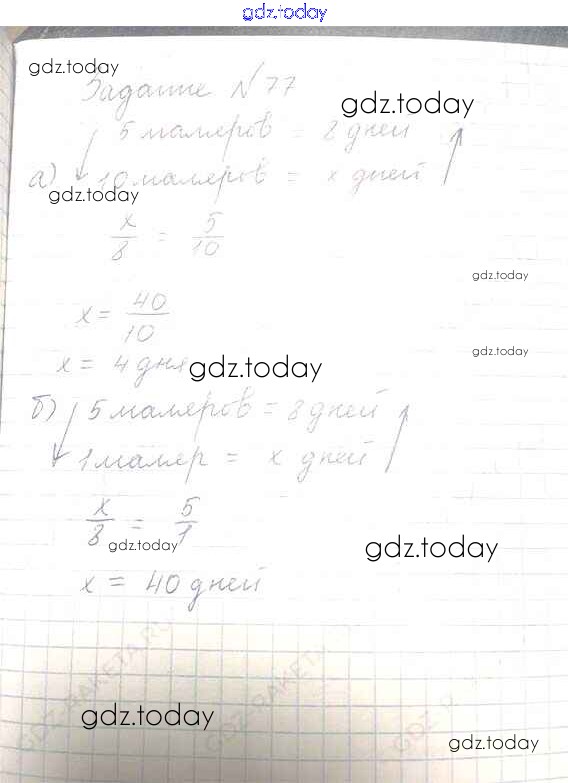 gdz.today
gdz.today
Задание №77
gdz.today
5 маляров = 8 дней
а) 10 маляров = x дней
gdz.today
x/8 = 5/10
gdz.today
x = 40/10
gdz.today
x = 4 дня
gdz.today
б) 5 маляров = 8 дней
1 маляр = x дней
x/8 = 5/1
gdz.today
gdz.today
x = 40 дней
GDZ-RAKETA.RU
GDZ-RAKETA
GDZ-R
gdz.today
gdz.today